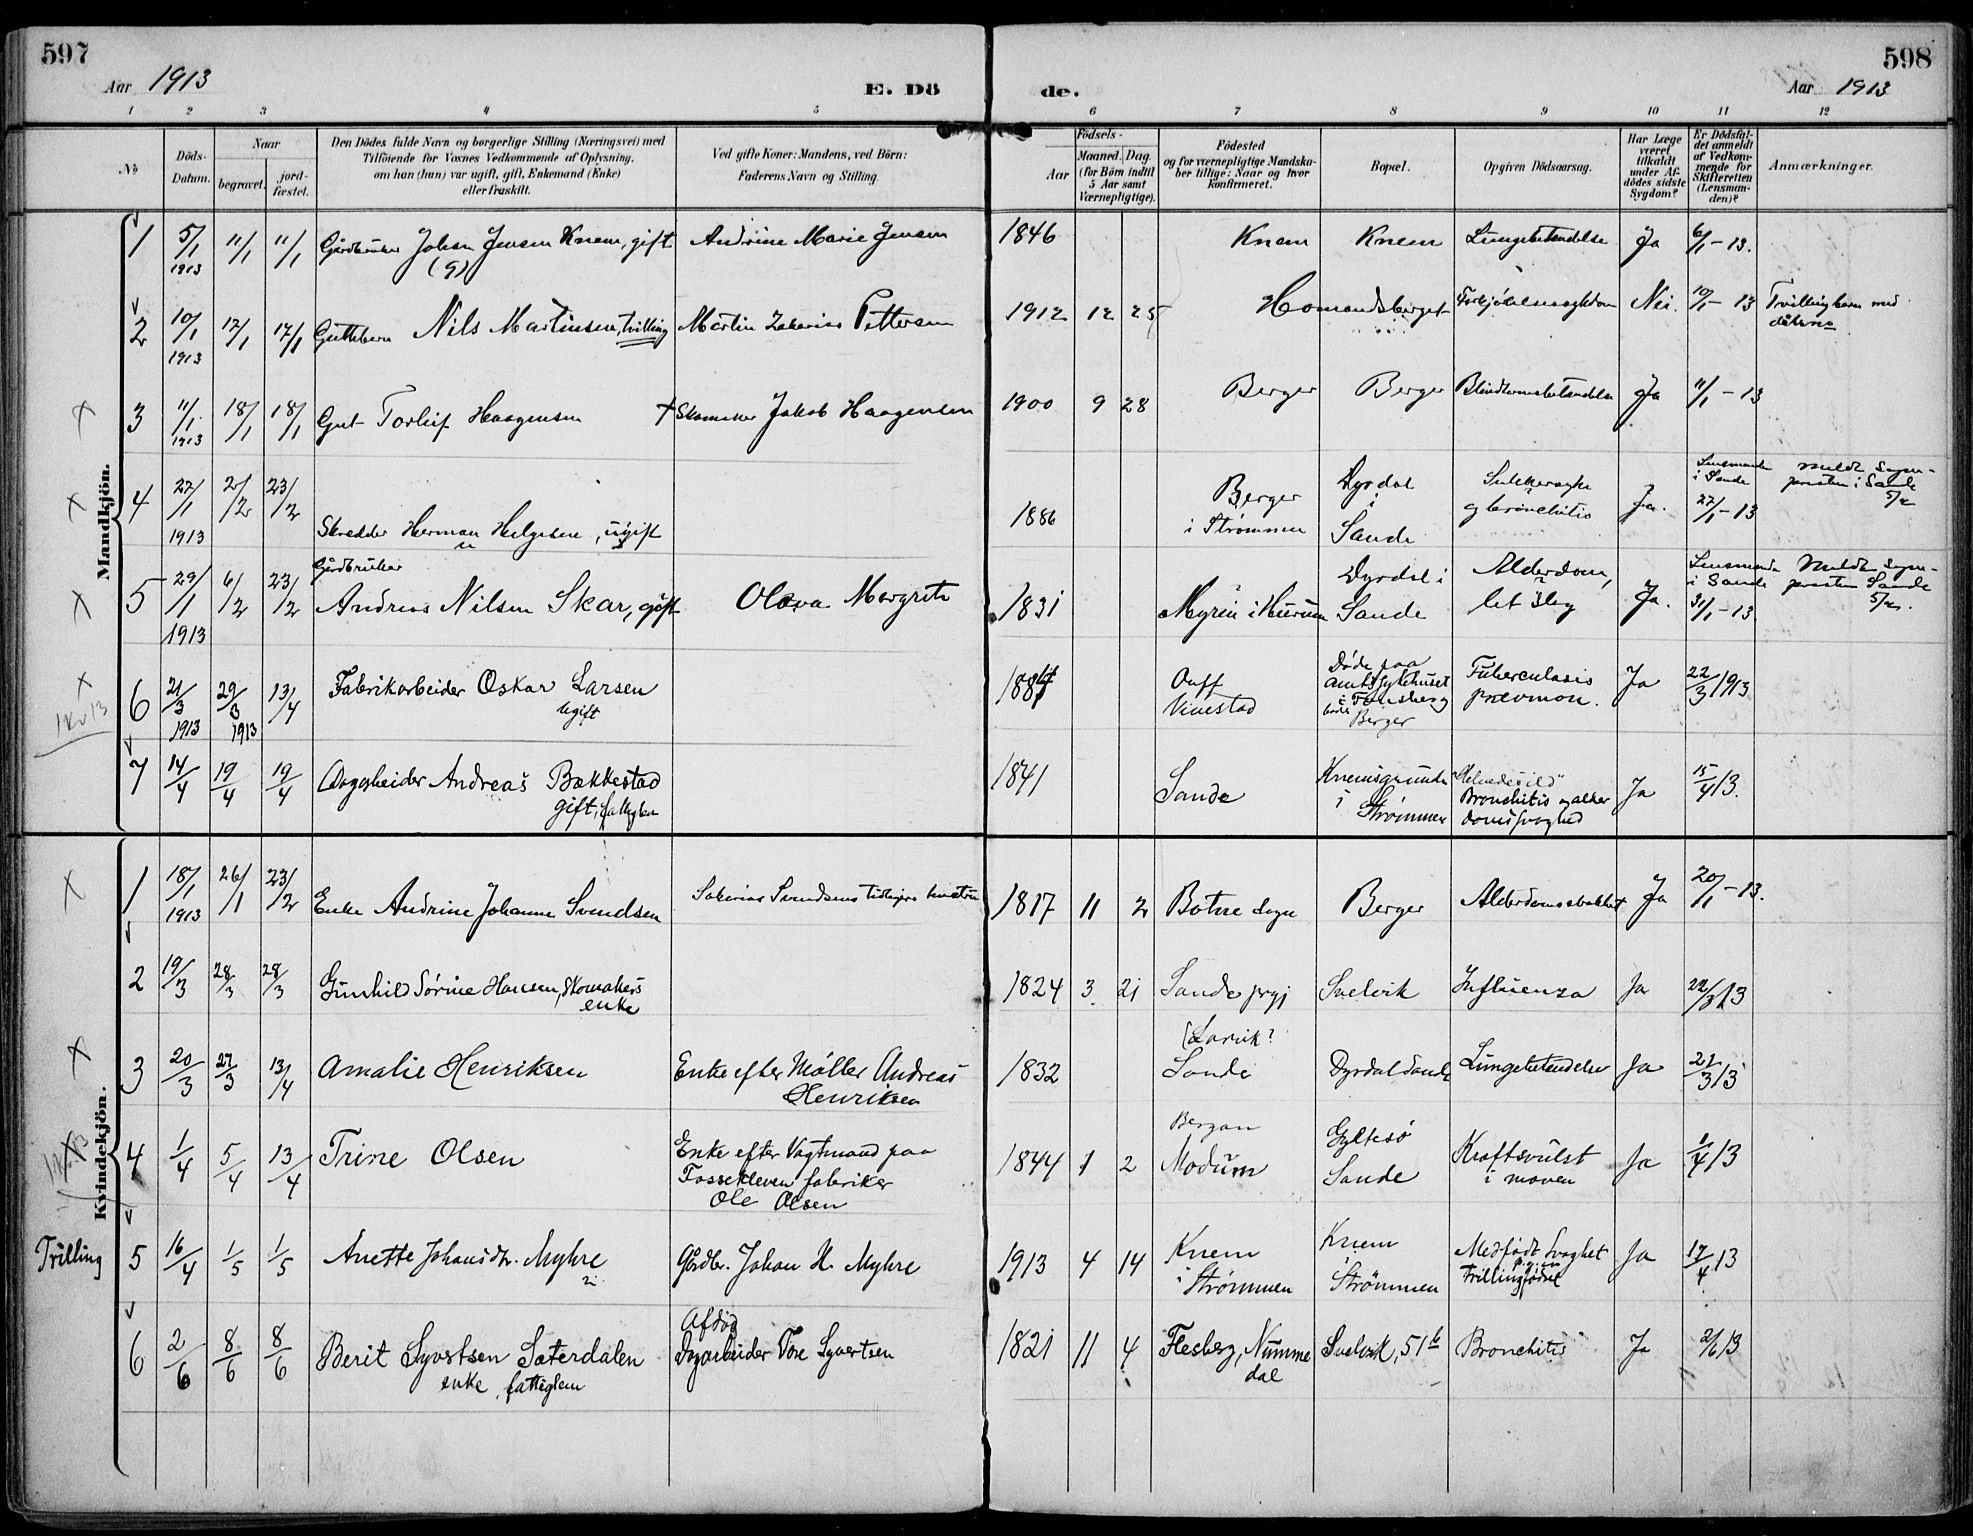 597
598
Aar 1913
E. Dö
de.
Aar 1913
1 2 3 4 5 6 7 8 9 10 11 12
No
Döds-Datum.
Naar
begravet.
jord-fæstet.
Den Dödes fulde Navn og borgerlige Stilling (Næringsvei) med
Tilföiende for Voxnes Vedkommende af Oplysning,
om han (hun) var ugift, gift, Enkemand (Enke)
eller fraskilt.
Ved gifte Koner: Mandens, ved Börn:
Faderens Navn og Stilling.
Födsels-
Aar
Maaned. Dag.
(for Börn indtil
5 Aar samt
Værnepligtige).
Födested
og for værnepligtige Mandska-
ber tillige: Naar og hvor
konfirmeret.
Bopæl.
Opgiven Dödsaarsag.
Har Læge
været
tilkaldt
under Af-
dödes sidste
Sygdom?
Er Dödsfal-
det anmeldt
af Vedkom-
mende for
Skifteretten
(Lensman-
den)?
Anmærkninger.
Mandkjön.
1 5/1 1913 11/1 11/1 Gårdbruker Johan Jensen Knem, gift Andrine Marie Jensen 1846 Knem Knem Lungebetændelse Ja 6/1-13.
(9)
2 10/1 1913 17/1 17/1 Guttebarn Nils Martinsen, tvilling Martin Zakarias Pettersen 1912 12 25 Homandsberget Forkjølelsessygdom Nei. 10/1-13 Tvillingbarn med
3 11/1 1913 18/1 18/1 Gut Torleif Haagensen Skomaker Jakob Haagensen 1900 9 28 Berger Berger Blindtarmsbetændelse Ja 11/1-13
4 27/1 1913 2/2 23/2 Skredder Herman Helgesen, ugift 1886 Berger
i Strømmen
Dyrdal
i
Sande
Sukkersyke
og bronchitis
Ja.
Lensmanden
i Sande
27/1-13
Meldt Sogne-
presten i Sande
5/2
Gårdbruker
5 29/1 1913 6/2 23/2 Andreas Nilsen Skar, gift Olava Margrete 1831 Myren i Hurum
Dyrdal i
Sande
Alderdom,
let slag
Ja.
Lensmanden
i Sande
31/1-13
Meldt Sogne-
presten Sande
5/2.
6 21/3 1913 29/3 1913 13/4 Fabrikarbeider Oskar Larsen
Ugift
1887
Vivestad
Døde paa
amtssykehuset
i Tønsberg
Berger
Tuberculosis
pulmon.
Ja 22/3 1913
1 Kv 13
7 14/4 19/4 19/4 Dagarbeider Andreas Bækkestad
gift, fattiglem
1841 Sande
Knemsgrunden
i
Strømmen
"Helvedesild"
Bronchitis og alder
domssvaghed
Ja 15/4 13.
Kvindekjön.
1 18/1 1913 26/1 23/2 Enke Andrine Johanne Svendsen Sakarias Svendsens tidligere hustru 1817 11 2 Botne sogn Berger Alderdomssvakhet Ja 20/1-13.
2 19/3 28/3 28/3 Gunhild Sørine Hansen, Skomakers
enke
1824 3 21 Sande prgj Svelvik Influenza Ja 22/3 13
(Larvik?
3 20/3 27/3 13/4 Amalie Henriksen Enke efter Møller Andreas
Henriksen
1832 Sande Dyrdal Sande Lungebetændelse Ja 22/3 13
4 1/4 5/4 13/4 Trine Olsen Enke efter Vagtmand paa
Fossekleven fabriker
Ole Olsen
1844 1 2
Bergan
Modum
Gyltesø
Sande
Kræftsvulst
i maven
Ja 1/4 13
Trilling
5 16/4 1/5 1/5 Anette Johansdtr. Myhre Gårdbr. Johan H. Myhre 1913 4 14
Knem
i Strømmen
Knem
i
Strömmen
Medfødt Svaghet
p.g. en
trillingfødsel
Ja 17/4 13
Afdöd
6 2/6 8/6 8/6 Berit Syvertsen Sæterdalen Dagarbeider Tore Syvertsen
enke, fattiglem
1821 11 4 Flesberg, Numme
dal
Svelvik, 51 b Bronchitis Ja 2/6 13